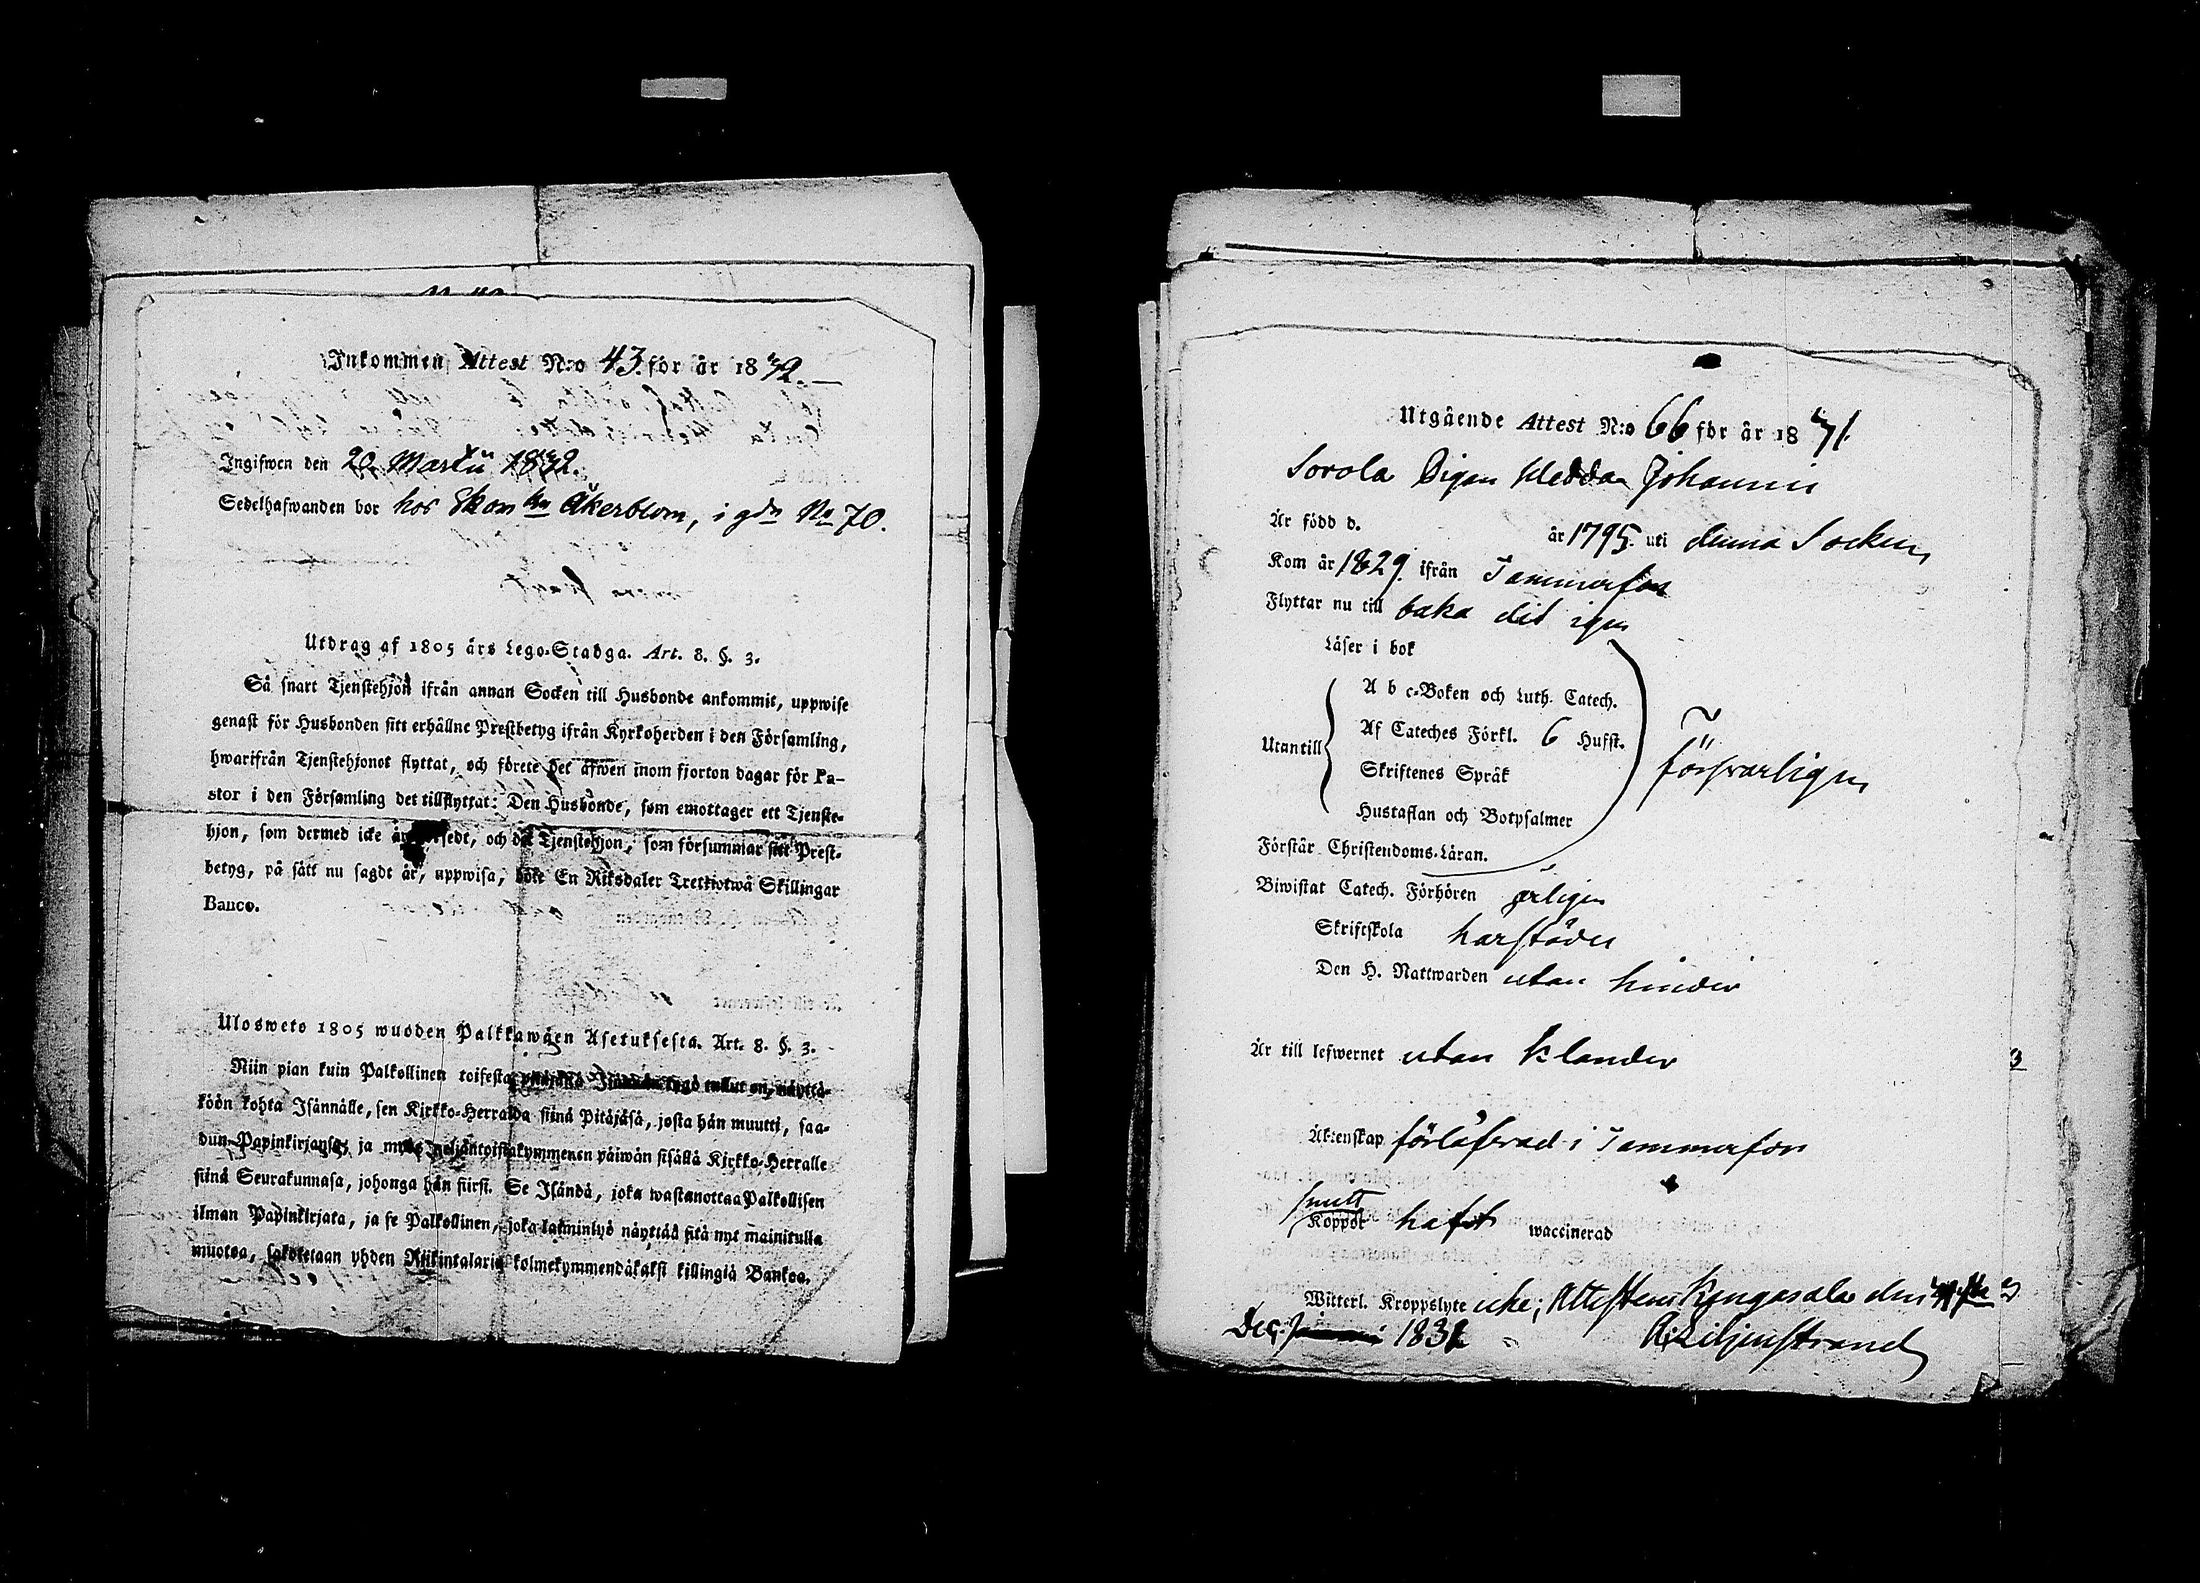 Inkommen Attest N:o 43 för år 1832.
Ingifwen den 20 Martii 1832.
Sedelhafwanden bor hos Skom kn Åkerblom, i gdn No 70.
Utdrag af 1805 års Lego-Stadga. Art. 8. §. 3.
Så snart Tjenstehjon ifrån annan Socken till Husbonde ankommit, uppwise
genast för Husbonden sitt erhållne Prestbetyg ifrån Kyrkoherden i den Församling,
hwarifrån Tjenstehjonet flyttat, och förete det äfwen inom fjorton dagar för Pa-
stor i den Församling det tillflyttat: Den Husbonde, som emottager ett Tjenste-
hjon, som dermed icke är försedt, och det Tjenstehjon, som försummar sitt Prest-
betyg, på sätt nu sagdt är, uppwisa, böte En Riksdaler Trettiotwå Skillingar
Banco.
Ulosweto 1805 wuoden Palkkawäen Asetuksesta. Art. 8. §. 3.
Niin pian kuin Palkollinen toisesta pitäjästä Isännän tygö tullut on, näyttä-
köön kohta Isännälle, sen Kirkko-Herralda siinä Pitäjäsä, josta hän muutti, saa-
dun Papinkirjansa, ja myös neljäntoistakymmenen päiwän sisällä Kirkko-Herralle
siinä Seurakunnasa, johonga hän siirsi. Se Isändä, joka wastanottaa Palkollisen
ilman Papinkirjata, ja se Palkollinen, joka laiminlyö näyttää sitä nyt mainitulla
muotoa, sakotetaan yhden Riikintalarin kolmekymmendäkaksi killingiä Bankoa.
Utgående Attest N:o 66 för år 1831.
Sorola Pigan Hedda Johanni
Är född d. år 1795. uti denna Socken
Kom år 1829. ifrån Tammerfors
Flyttar nu till baka dit igen
Läser i bok
A b c-Boken och Luth. Catech.
Af Cateches Förkl. 6 Hufst.
Utantill
Skriftenes Språk
försvarligen
Hustaflan och Botpsalmer
Förstår Christendoms-Läran.
Biwistat Catech. Förhören årligen
Skriftskola härstädes
Den H. Nattwarden utan hinder
Är till lefwernet utan klander
Äktenskap förlåfvad i Tammerfors
Koppor haft waccinerad
Witterl. Kroppslyte icke; Attesteras Kangasala den 3
Dec. 1831 A: Liljenstrand